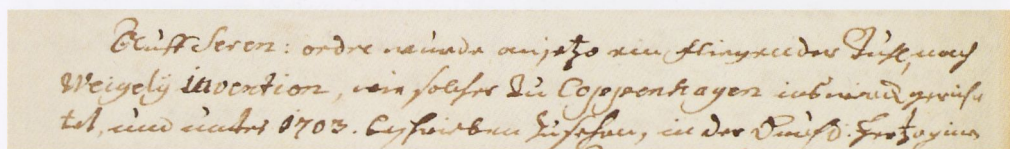 Auff Seren: ordre wurde anjetzo ein fliegender Stuhl, nach
Weigely invention, wie solcher zu Coppenhagen ins werck gerich-
tet, und unter 1703. beschrieben zusehen, in der Durchl: Hertzogin